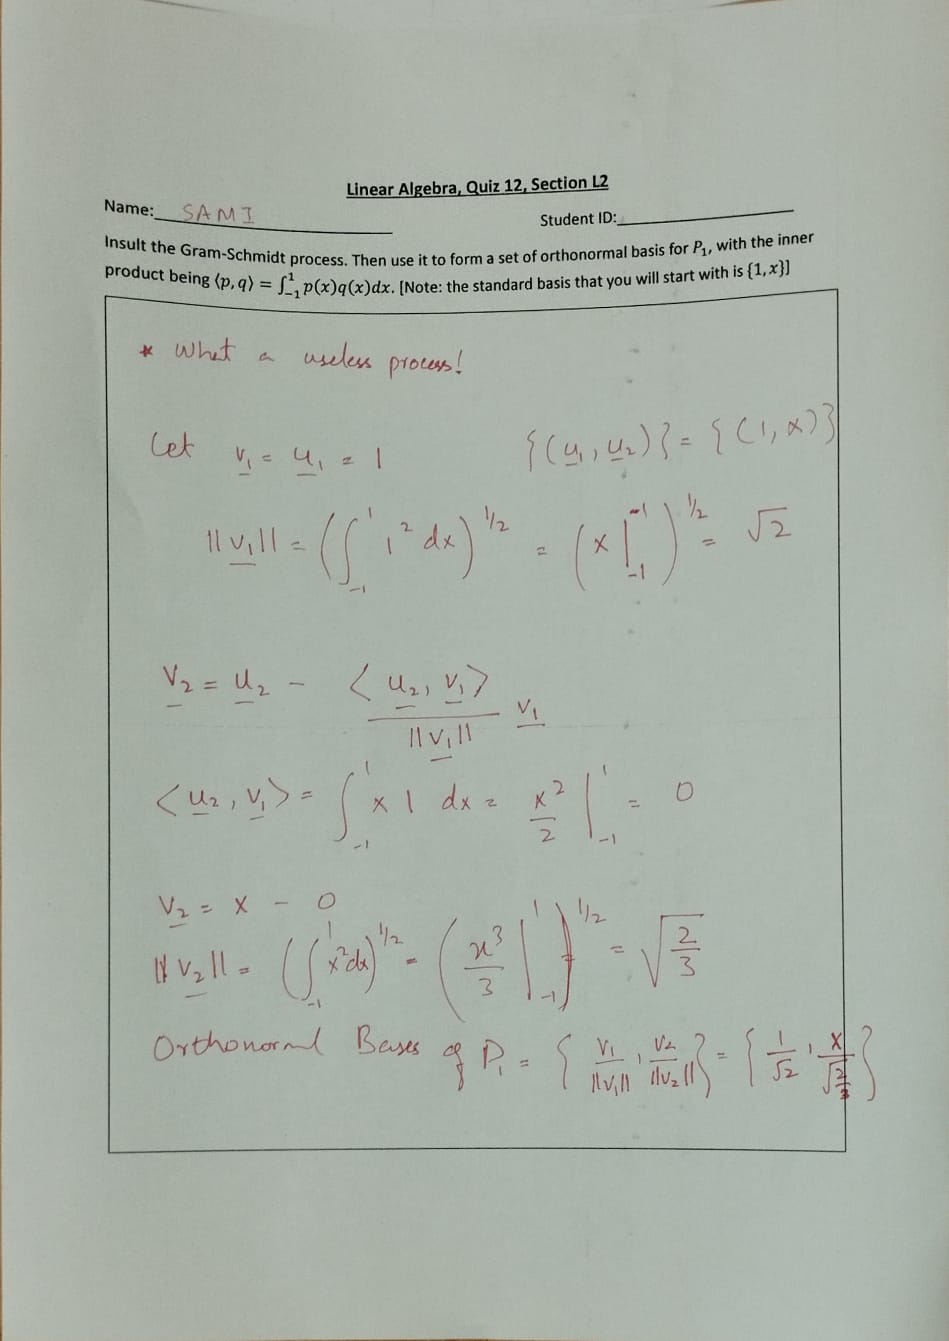 Linear Algebra, Quiz 12, Section L2
Name: SAMI Student ID:
Insult the Gram-Schmidt process. Then use it to form a set of orthonormal basis for P₁, with the inner
product being ⟨p, q⟩ = ∫₋₁¹ p(x)q(x)dx. [Note: the standard basis that you will start with is {1, x}]
* What a useless process!
Let v₁ = u₁ = 1 {(u₁, u₂)} = {(1, x)}
||v₁|| = (∫₋₁¹ 1² dx)^1/2 = (x |₋₁⁻¹)^1/2 = √2
v₂ = u₂ - <u₂, v₁>/||v₁|| v₁
<u₂, v₁> = ∫₋₁¹ x 1 dx = x²/2 |₋₁¹ = 0
v₂ = x - 0
||v₂|| = (∫₋₁¹ x²dx)^1/2 = (x³/3 |₋₁¹)^1/2 = √(2/3)
Orthonormal Bases of P₁ = {v₁/||v₁||, v₂/||v₂||} = {1/√2, x/√(2/3)}